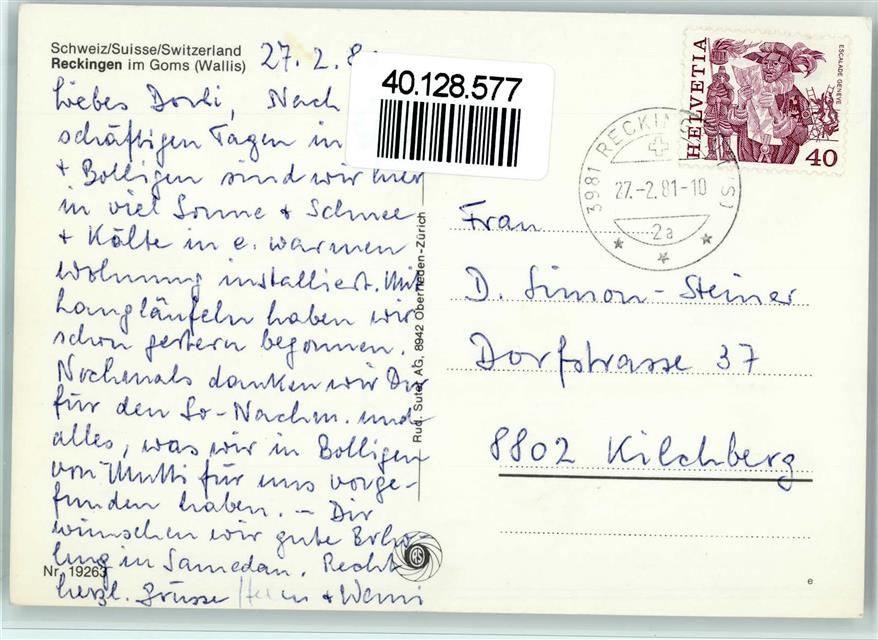 Schweiz/Suisse/Switzerland
Reckingen im Goms (Wallis)
27. 2. 8
Liebes Dorli, Nach
schäftigen Tagen in
+ Bolligen sind wir hier
in viel Sonne + Schnee
+ Kälte in e. warmen
Wohnung installiert. Mit
Langläufeln haben wir
schon gestern begonnen.
Nochmals danken wir Dir
für den So-Nachm. und
alles, was wir in Bolligen
von Mutti für uns vorge-
funden haben. – Dir
wünschen wir gute Erho-
lung in Samedan. Recht
herzl. Grüsse + Werni
Nr. 19263
40.128.577
Rud. Suter AG, 8942 Oberrieden-Zürich
RS
HELVETIA
ESCALADE GENÈVE
40
3981 RECKIN (VS)
27.-2.81-10
2a
Frau
D. Simon-Steiner
Dorfstrasse 37
8802 Kilchberg
e